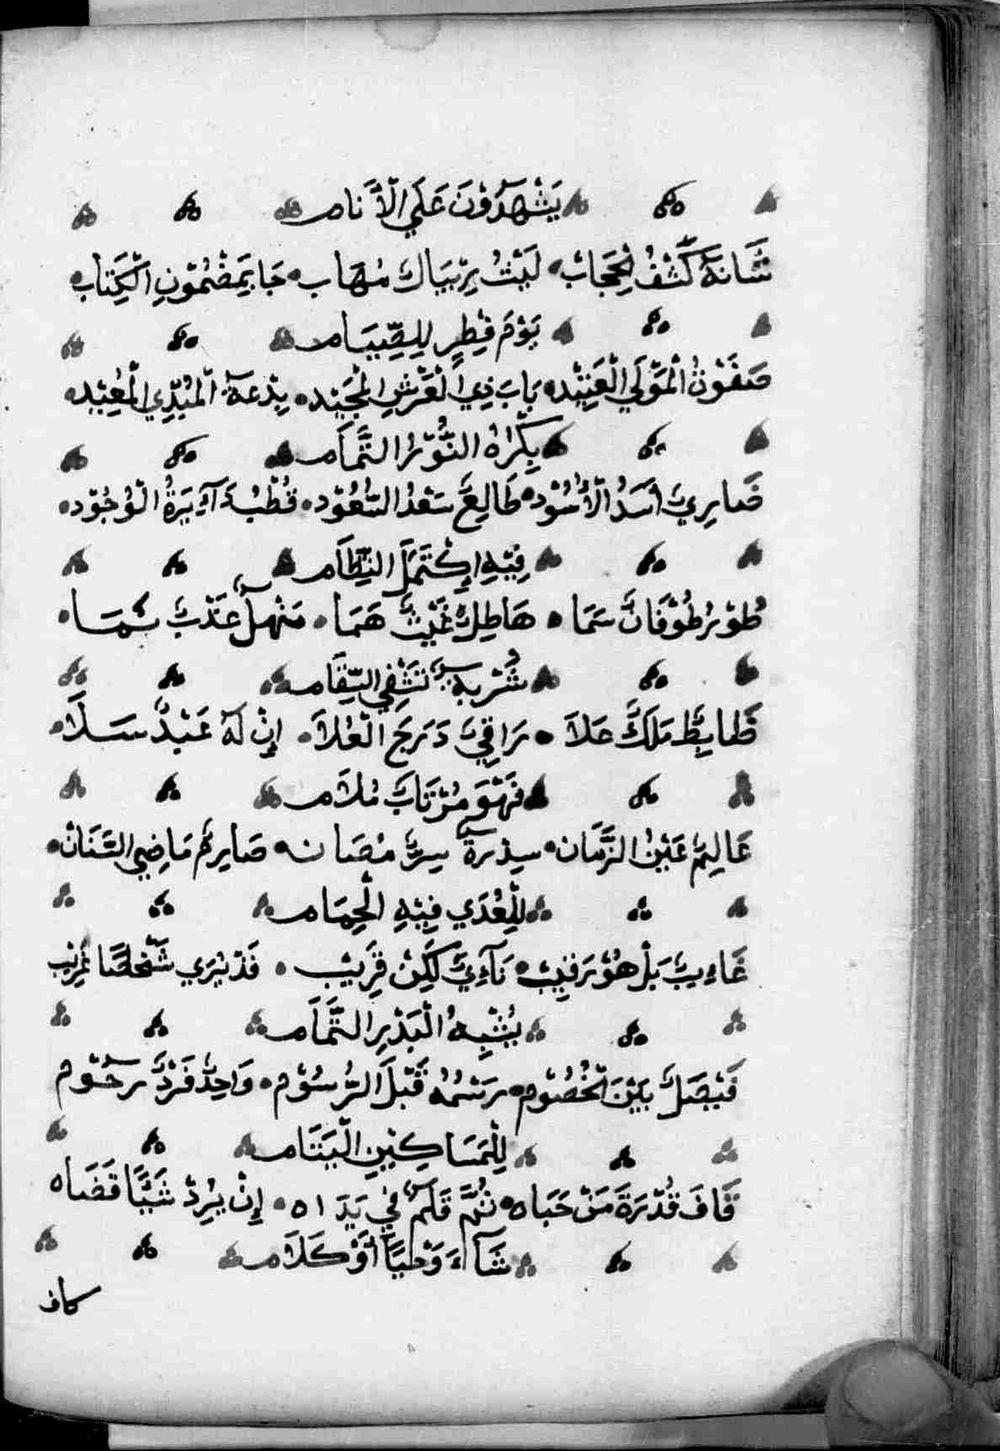 يَشْهَدُوْنَ عَلَي الْأَنَام
شَانَهُ كَشْفُ لْحِجَابْ لَيْثُ رِيْبَاكْ مُهَابْ جَا بِمَضْمُوْنِ الْكِتَابْ
يَوْمَ فِطِرٍ لِلصِّيَام
صَفْوَتُ الْمَوْلَي الْعَتِيْدْ بَابَ ذِي الْعَرْشِ الْمَجِيْدْ بِدْعَةُ الْمُبْدِي الْمُعِيْدْ
بِكْرُهُ النُّوْرُ التَّمَام
ضَارِيٌ أَسَدُ الْأُسُوْدْ طَالِعٌ سَعْدُ السُّعُوْدْ قُطْبُ دَآيِرَةُ الْوُجُوْدْ
فِيْهِ اِكْتَمَلَ النِّظَام
طُوْرُ طُوْفَانٌ سَمَا هَاطِلٌ غَيْثٌ هَمَا مَنْهَلٌ عَذْبٌ
شُرْبَهُ تَشْفِي السِّقَام
مَلَكٌ عَلَا رَاقِيٌ دَرَجَ الْعُلَا اِنْ لَهُ عَبْدٌ سَلَا
فَهْوَ مُرْتَابٌ مُلَام
عَالِمٌ عَيْنُ الزَّمَانْ سِدْرَةٌ سِرٌّ مُصَانْ صَارِمٌ مَاضِي السِّنَانْ
لِلْعُدَي فِيْهِ الْحِمَام
غَايِبٌ بَلْ هُوْ رَقِيْبْ نَآءِيٌ لَكِنْ قَرِيْبْ قَدْ يُرَي شَخْصًا غَرِيْبْ
يُشْبِهُ الْبَدْرِ التَّمَام
فَيْصَلٌ بَيْنَ الْخُصُوْمْ رَسْمُهُ قَبْلَ الرُّسُوْمْ وَاحِدٌ فَرْدٌ رَحُوْمْ
لِلْمَسَاكِيْنِ الْيَتَام
قَافَ قُدْرَةَ مَنْ حَبَاهْ ثُمَّ قَلَمٌ فِي يَدَاهْ إِنْ يُرِدْ شَيْئًا قَضَاهْ
شَآءَ وَحْيًا أَوْ كَلَام
كاف